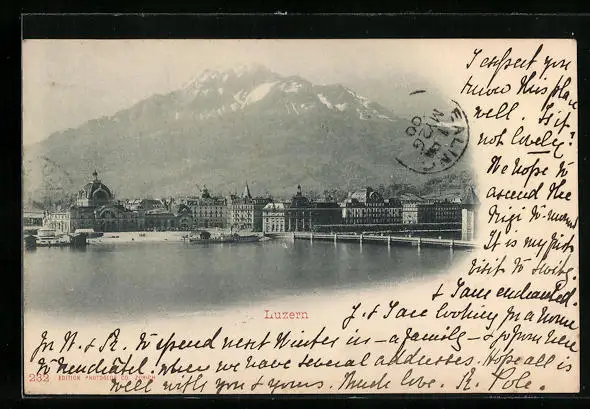 I expect you
know this place
well. Is it
not lovely?
We hope to
ascend the
Rigi to-morrow
It is my first
visit to Switz.
& I am enchanted.
J. & I are looking for a home
for N. & R. to spend next Winter in - a family - & go from here
to Neuchâtel. where we have several addresses. Hope all is
well with you & yours. Much love. R. Pole.
EALING
MY 26
00
Luzern
232 EDITION PHOTOGLOB CO. ZÜRICH